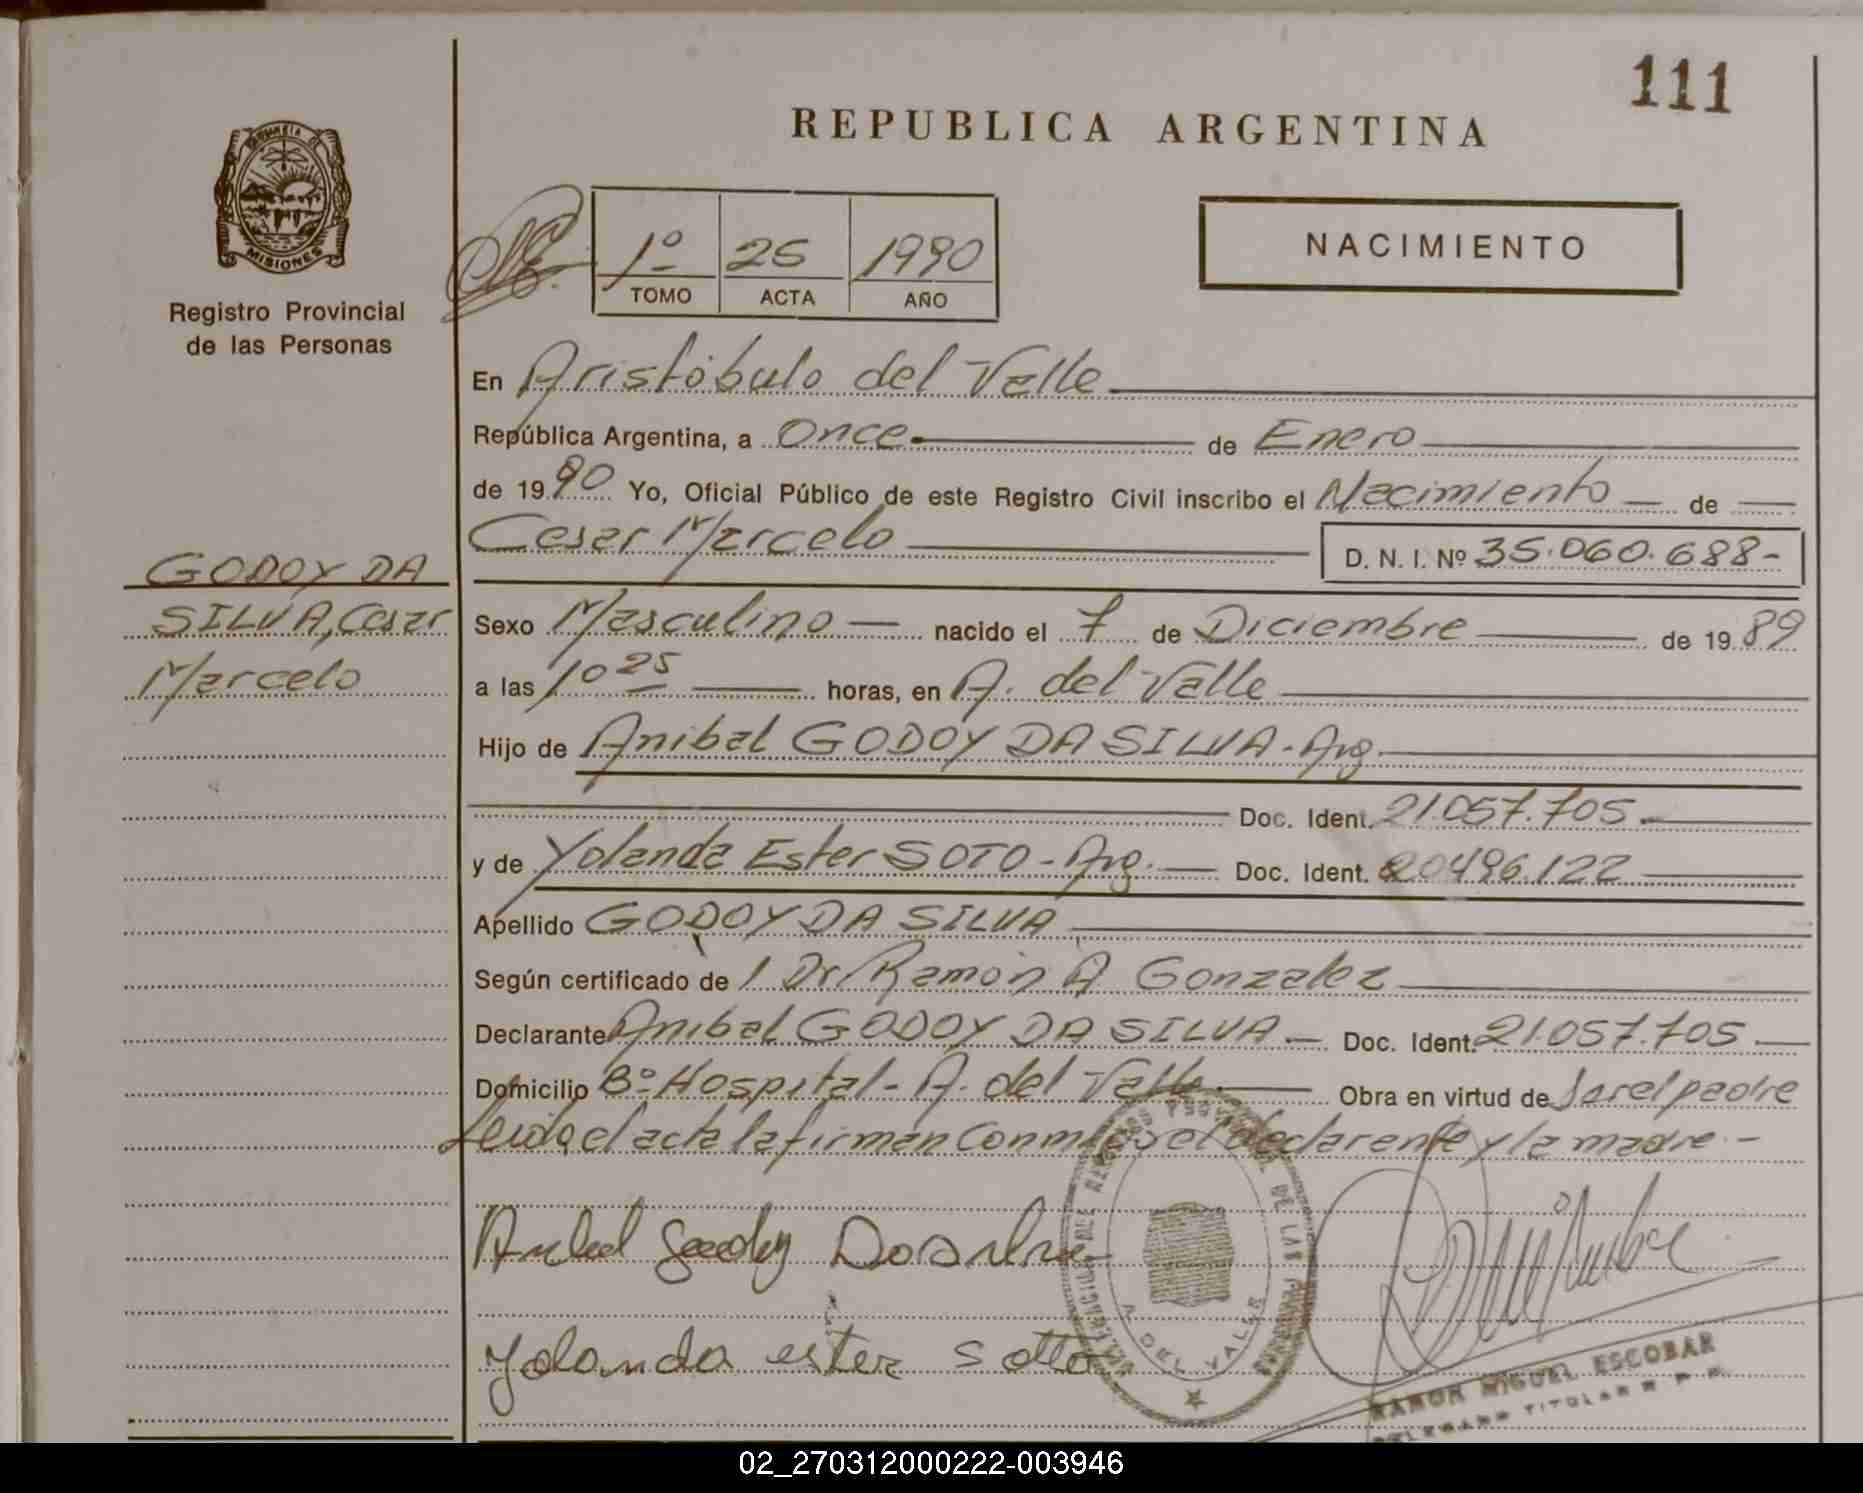 111
REPUBLICA ARGENTINA
PROVINCIA DE
MISIONES
Registro Provincial
de las Personas
1º 25 1990
TOMO ACTA AÑO
NACIMIENTO
En Aristóbulo del Valle
República Argentina, a Once de Enero
de 1990 Yo, Oficial Público de este Registro Civil inscribo el Nacimiento de
Cesar Marcelo D. N. I. Nº 35.060.688-
GODOY DA
SILVA, Cesar
Marcelo
Sexo Masculino nacido el 7 de Diciembre de 1989
a las 10 25 horas, en A. del Valle
Hijo de Anibal GODOY DA SILVA - Arg.
Doc. Ident. 21.057.705
y de Yolanda Ester SOTO - Arg. Doc. Ident. 20496.122
Apellido GODOY DA SILVA
Según certificado de l Dr. Ramón A Gonzalez
Declarante Anibal GODOY DA SILVA Doc. Ident. 21.057.705
Domicilio Bº Hospital - A. del Valle Obra en virtud de Ser el padre
Leida el acta la firman Conmigo el declarante y la madre.-
Yolanda ester sotto
A. DEL VALLE
RAMON MIGUEL ESCOBAR
TITULAR R P P
02_270312000222-003946